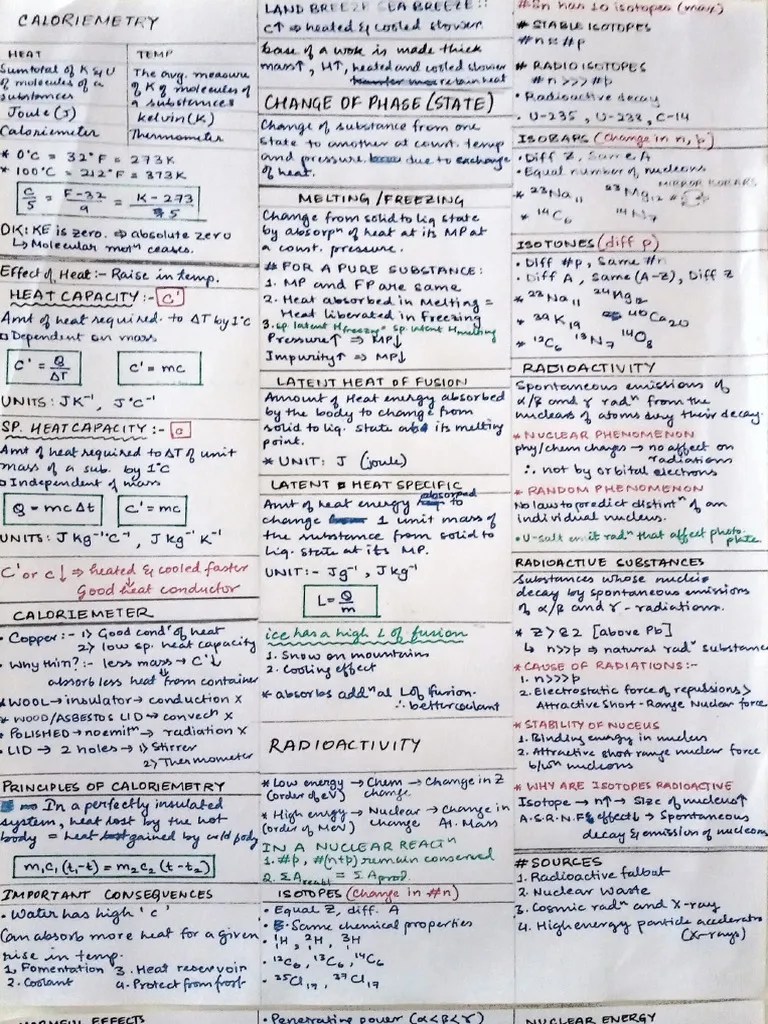 CALORIEMETRY
HEAT
Sumtotal of K & U
of molecules of a
substances
Joule (J)
Caloriemeter
TEMP
The avg. measure
of K of molecules
of a substances
kelvin (K)
Thermometer
* 0°C = 32°F = 273K
* 100°C = 212°F = 373K
C/5 = F-32/9 = K-273/5
0K: KE is zero. ⇒ absolute zero
↳ Molecular motⁿ ceases.
Effect of Heat:- Raise in temp.
HEAT CAPACITY:- c'
Amt of heat required to ΔT by 1°C
Dependent on mass
C' = Q/ΔT
C' = mc
UNITS: JK⁻¹, J°C⁻¹
SP. HEAT CAPACITY:- c
Amt of heat required to ΔT of unit
mass of a sub. by 1°C
Independent of mass
Q = mcΔt
C' = mc
UNITS: J Kg⁻¹°C⁻¹, J Kg⁻¹ K⁻¹
C' or c ↓ ⇒ heated & cooled faster
↓
Good heat conductor
CALORIEMETER
• Copper:- 1) Good condʳ of heat
2) low sp. heat capacity
• Why thin?:- less mass → C'↓
↓
absorb less heat from container
* WOOL → insulator → conduction X
* WOOD/ASBESTOS LID → convecⁿ X
* POLISHED → no emitⁿ → radiation X
• LID → 2 holes → 1) Stirrer
2) Thermometer
PRINCIPLES OF CALORIEMETRY
In a perfectly insulated
system, heat lost by the hot
body = heat gained by cold body
m₁c₁(t₁-t) = m₂c₂(t-t₂)
IMPORTANT CONSEQUENCES
• Water has high 'c'
Can absorb more heat for a given
rise in temp.
1. Fomentation 3. Heat reservoir
2. Coolant 4. Protect from frost
LAND BREEZE SEA BREEZE::
C↑ ⇒ heated & cooled slower.
base of a wok is made thick
mass↑, H↑, heated and cooled slower
retain heat
CHANGE OF PHASE (STATE)
Change of substance from one
state to another at const. temp
and pressure due to exchange
of heat.
MELTING/FREEZING
Change from solid to liq state
by absorpⁿ of heat at its MP at
a const. pressure.
# FOR A PURE SUBSTANCE:
1. MP and FP are same
2. Heat absorbed in Melting =
Heat liberated in Freezing
3. sp. latent H freezing = sp. latent H melting
Pressure↑ ⇒ MP↓
Impurity↑ ⇒ MP↓
LATENT HEAT OF FUSION
Amount of Heat energy absorbed
by the body to change from
solid to liq. state at its melting
point.
* UNIT: J (joule)
LATENT HEAT SPECIFIC
Amt of heat energy absorbed to
change 1 unit mass of
the substance from solid to
liq. state at its MP.
UNIT:- Jg⁻¹, JKg⁻¹
L = Q/m
ice has a high L of fusion
1. Snow on mountains
2. Cooling effect
* absorbs addⁿal L of fusion.
∴ better coolant
RADIOACTIVITY
* Low energy → Chem → Change in Z
(order of eV) change
* High energy → Nuclear → Change in
(order of MeV) change At. Mass
IN A NUCLEAR REACTⁿ
1. #p, #(n+p) remain conserved
2. ΣA react = ΣA prod.
ISOTOPES (Change in #n)
• Equal Z, diff. A
• Same chemical properties
• ¹H, ²H, ³H
• ¹²C₆, ¹³C₆, ¹⁴C₆
• ³⁵Cl₁₇, ³⁷Cl₁₇
• Penetrating power (α<β<γ)
#Sn has 10 isotopes (max)
* STABLE ISOTOPES
#n ≈ #p
* RADIO ISOTOPES
#n >>> #p
• Radioactive decay
• U-235, U-238, C-14
ISOBARS (change in n, p)
• Diff Z, Same A
• Equal number of nucleons
MIRROR ISOBARS
* ²³Na₁₁ ²³Mg₁₂
* ¹⁴C₆ ¹⁴N₇
ISOTONES (diff p)
• Diff #p, Same #n
• Diff A, Same (A-Z), Diff Z
* ²³Na₁₁ ²⁴Mg₁₂
* ³⁹K₁₉ ⁴⁰Ca₂₀
* ¹²C₆ ¹³N₇ ¹⁴O₈
RADIOACTIVITY
Spontaneous emissions of
α/β and γ radⁿ from the
nucleus of atoms during their decay.
* NUCLEAR PHENOMENON
phy/chem changes → no affect on
radiations
∴ not by orbital electrons
* RANDOM PHENOMENON
No law to predict distintⁿ of an
individual nucleus.
• U-salt emit radⁿ that affect photo-
plate.
RADIOACTIVE SUBSTANCES
Substances whose nuclei
decay by spontaneous emissions
of α/β and γ - radiations.
* Z > 82 [above Pb]
↳ n>>p ⇒ natural radⁿ substance
* CAUSE OF RADIATIONS:-
1. n>>>p
2. Electrostatic force of repulsions >
Attractive Short-Range Nuclear force
* STABILITY OF NUCEUS
1. Binding energy in nucleus
2. Attractive short range nuclear force
b/wⁿ nucleons
* WHY ARE ISOTOPES RADIOACTIVE
Isotope → n↑ → Size of nucleus↑
A.S.R.N.F effect↓ → Spontaneous
decay & emission of nucleons
# SOURCES
1. Radioactive fallout
2. Nuclear waste
3. Cosmic radⁿ and X-ray
4. High energy particle accelerato
(X-rays)
NUCLEAR ENERGY